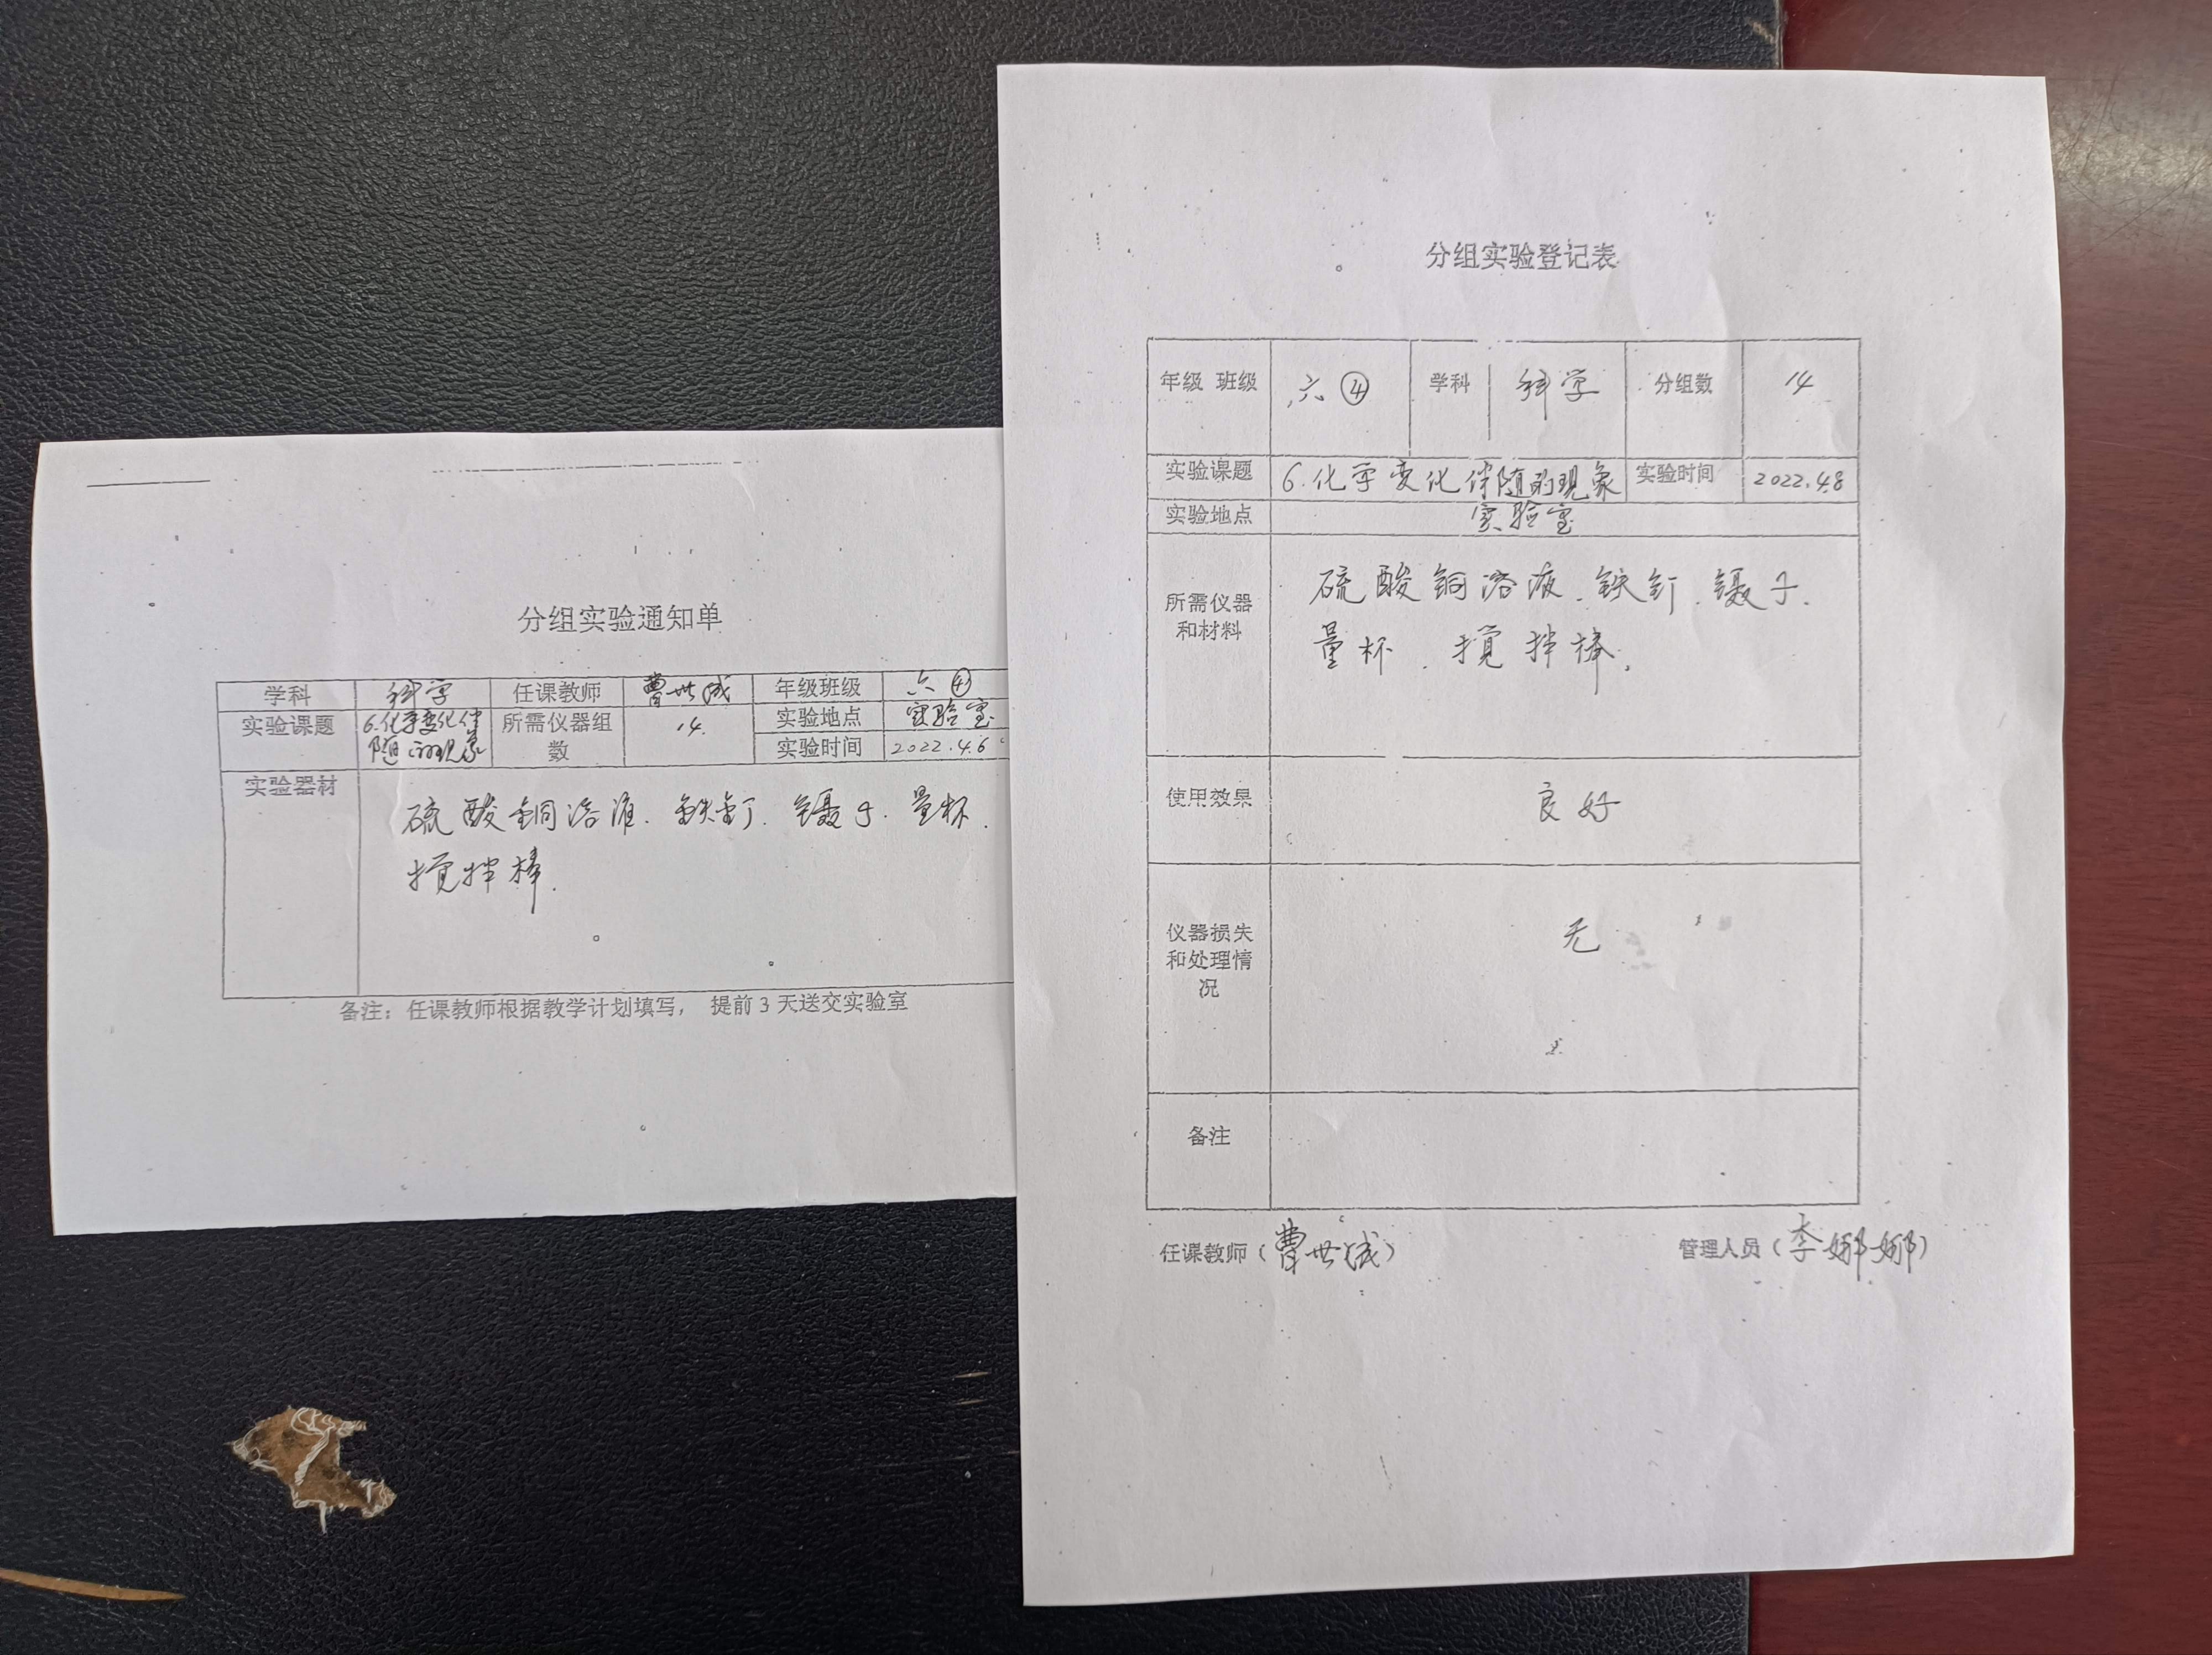 分组实验通知单
学科 科学 任课教师 曹世成 年级班级 六④
实验课题 6.化学变化伴随的现象 所需仪器组数 14. 实验地点 实验室
实验时间 2022.4.6
实验器材 硫酸铜溶液.铁钉.镊子.量杯.
搅拌棒.
备注：任课教师根据教学计划填写， 提前3天送交实验室
分组实验登记表
年级 班级 六④ 学科 科学 分组数 14
实验课题 6.化学变化伴随的现象 实验时间 2022.4.8
实验地点 实验室
所需仪器和材料 硫酸铜溶液.铁钉.镊子.
量杯.搅拌棒.
使用效果 良好
仪器损失和处理情况 无
备注
任课教师（曹世成） 管理人员（李娜娜）